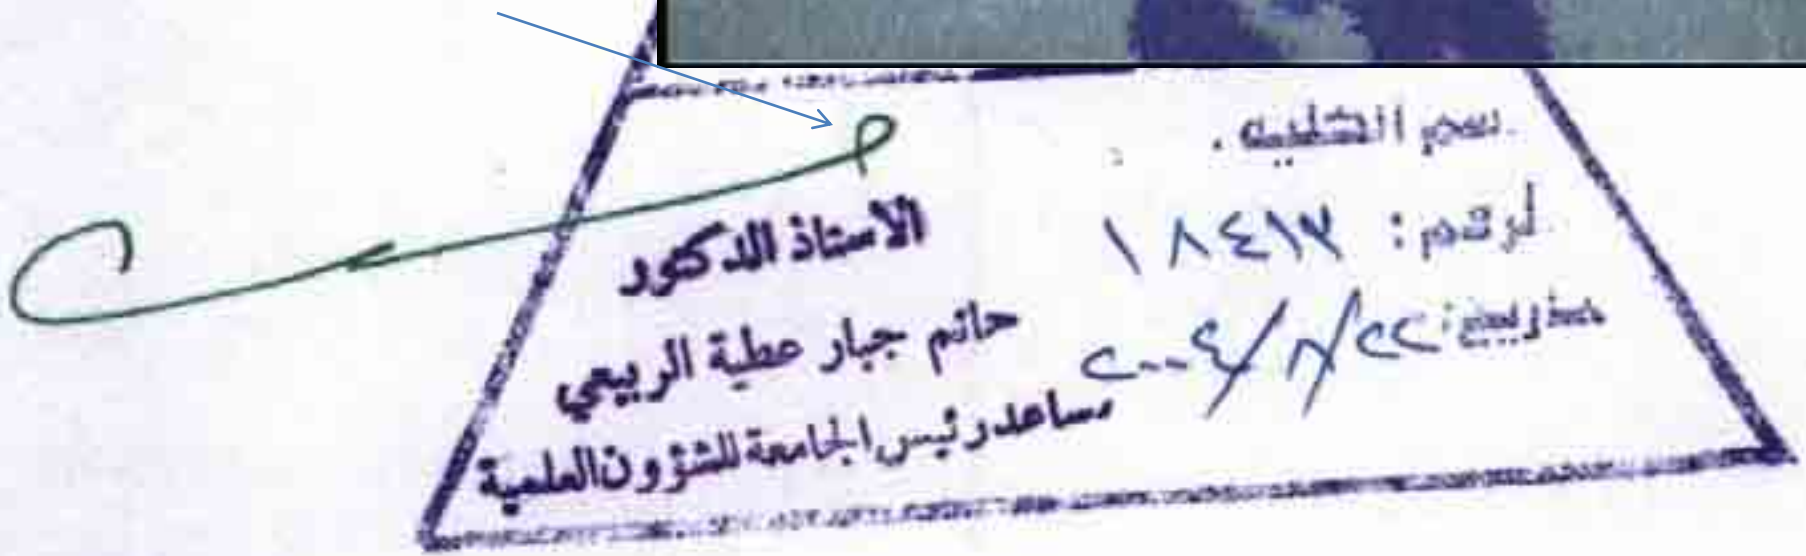 الرقم: ١٨٤١٣
٢٠٠٤/٨/٢٢
الأستاذ الدكتور
حاتم جبار عطية الربيعي
مساعد رئيس الجامعة للشؤون العلمية